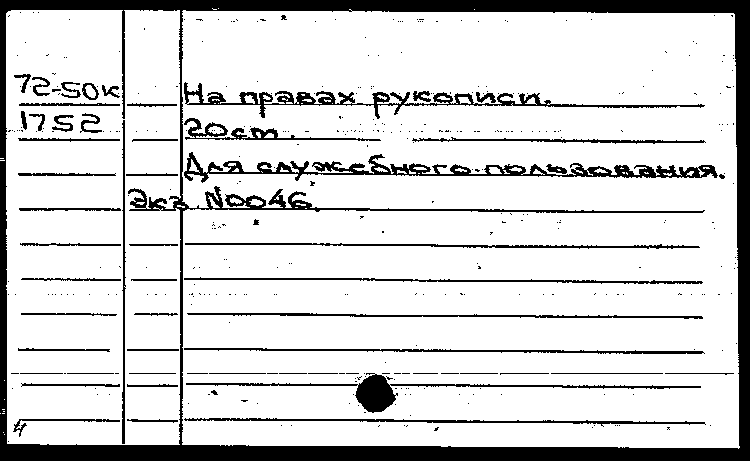 72-50к На правах рукописи.
1752 20cm.
Для служебного пользования.
Экз. №0046.
4